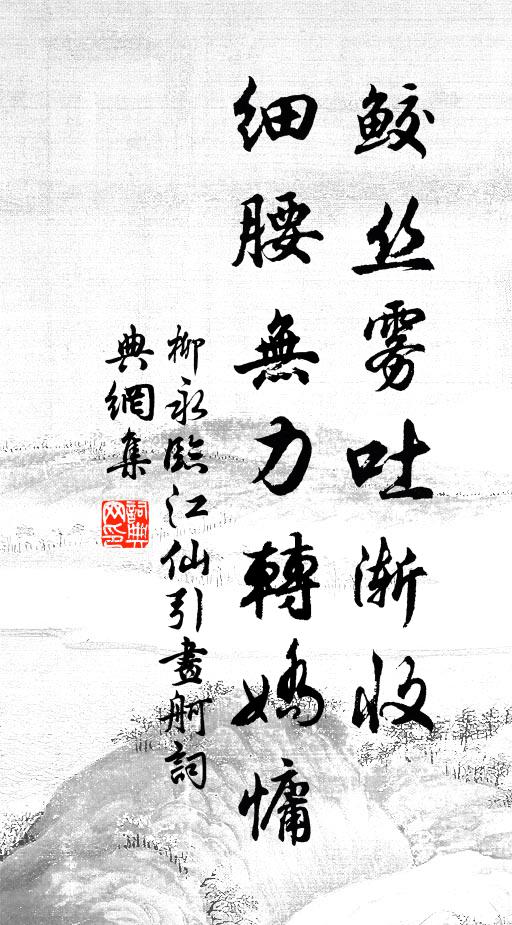 鲛丝雾吐渐收
细腰無力轉嬌慵
柳永臨江仙引畫舸詞
典網集
詞典網印